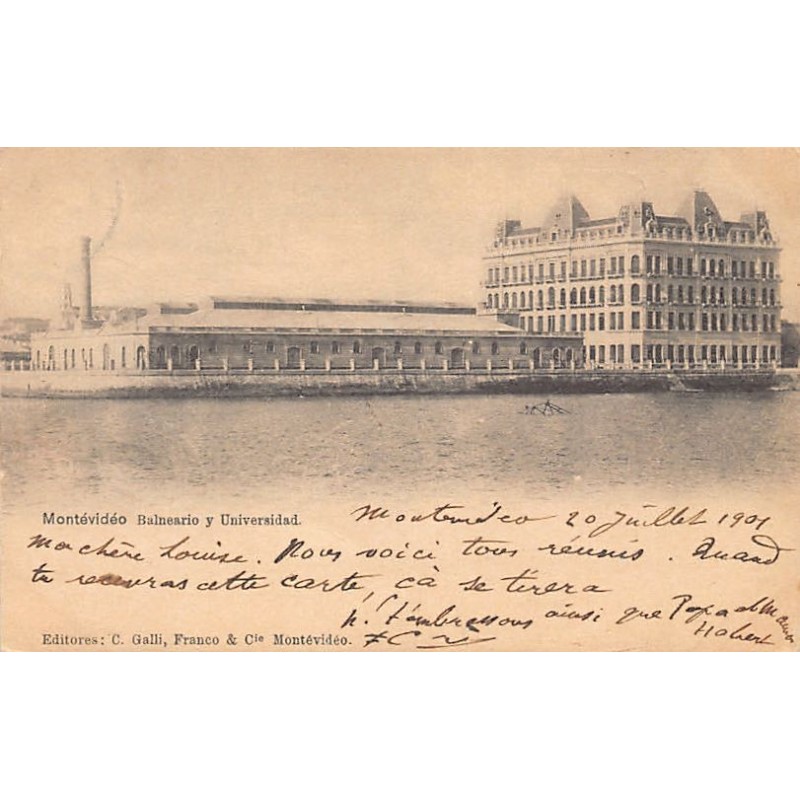 Montévidéo Balneario y Universidad.
Montevideo 20 Juillet 1901
Ma chère Louise. Nous voici tous réunis. Quand
tu recevras cette carte, çà se tirera
N. t'embrassons ainsi que Papa et Maman
Editores: C. Galli, Franco & Cie Montévidéo.